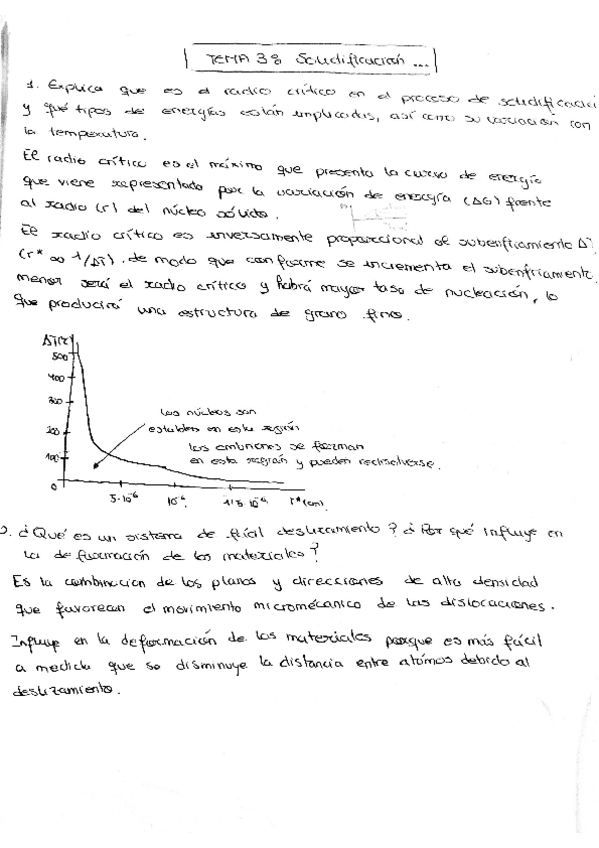 TEMA 3: Solidificación ...
1. Explica que es el radio crítico en el proceso de solidificación
y qué tipos de energías están implicadas, así como su variación con
la temperatura.
El radio crítico es el máximo que presenta la curva de energía
que viene representado por la variación de energía (ΔG) frente
al radio (r) del núcleo sólido.
El radio crítico es inversamente proporcional al subenfriamiento ΔT
(r* ∞ 1/ΔT), de modo que conforme se incrementa el subenfriamiento
menor será el radio crítico y habrá mayor tasa de nucleación, lo
que producirá una estructura de grano fino.
500
400
300
200
100
0
los núcleos son
estables en esta región
los embriones se forman
en esta región y pueden redisolverse.
5·10⁻⁶
10⁻⁶
1'5·10⁻⁶
r*(cm)
2. ¿Qué es un sistema de fácil deslizamiento? ¿Por qué influye en
la deformación de los materiales?
Es la combinación de los planos y direcciones de alta densidad
que favorecen el movimiento micromecánico de las dislocaciones.
Influye en la deformación de los materiales porque es más fácil
a medida que se disminuye la distancia entre átomos debido al
deslizamiento.